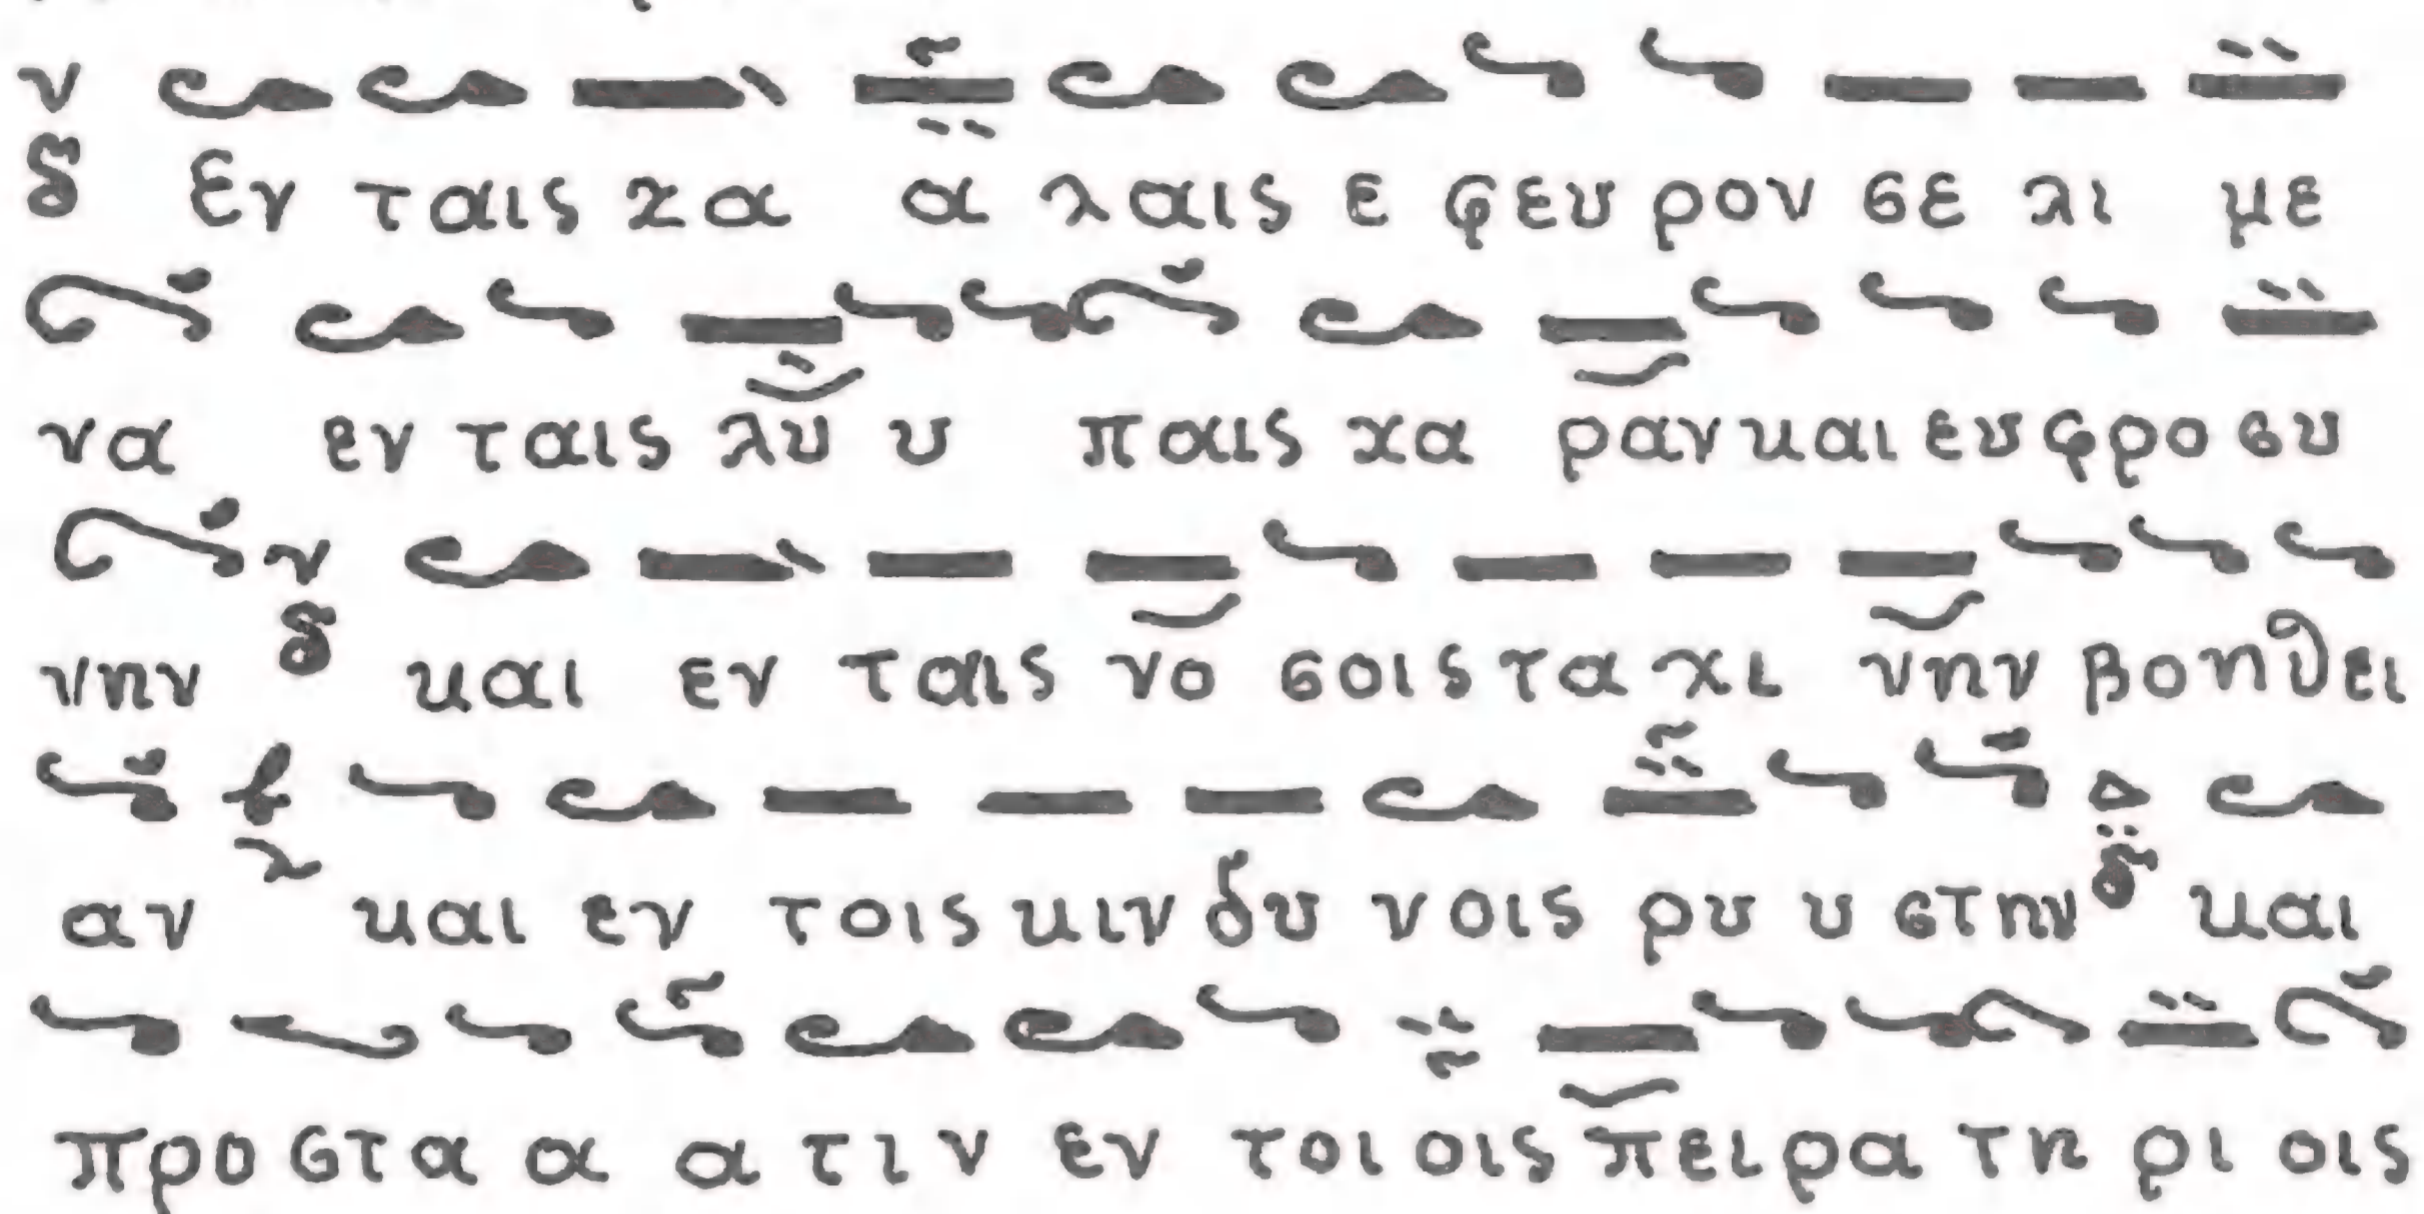 ν
δ Εν ταις ζα α λαις ε φευ ρον σε λι με
να εν ταις λυ υ παις χα ραν και ευ φρο συ
νην δ και εν ταις νο σοις τα χι νην βο η θει
αν και εν τοις κιν δυ νοις ρυ υ στην δ και
προ στα α α τιν εν τοι οις πει ρα τη ρι οις